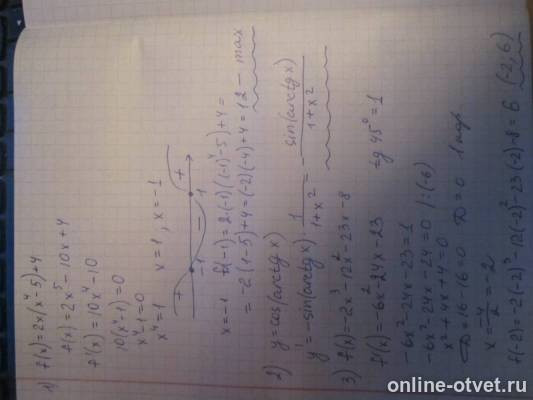 1) f(x)=2x(x⁴-5)+4
f(x)=2x⁵-10x+4
f'(x)=10x⁴-10
10(x⁴-1)=0
x⁴-1=0
x⁴=1 x=1, x=-1
+ -1 - 1 +
x=-1 f(-1)=2·(-1)((-1)⁴-5)+4=
=-2(1-5)+4=(-2)(-4)+4=12 - max
2) y=cos(arctgx)
y'=-sin(arctgx)·1/(1+x²)=-sin(arctgx)/(1+x²)
3) f(x)=-2x³-12x²-23x-8
f'(x)=-6x²-24x-23 tg 45°=1
-6x²-24x-23=1
-6x²-24x-24=0 |:(-6)
x²+4x+4=0
D=16-16=0 D=0 1 кор
x=-4/2=-2
f(-2)=-2(-2)³-12(-2)²-23(-2)-8=6 (-2,6)
online-otvet.ru